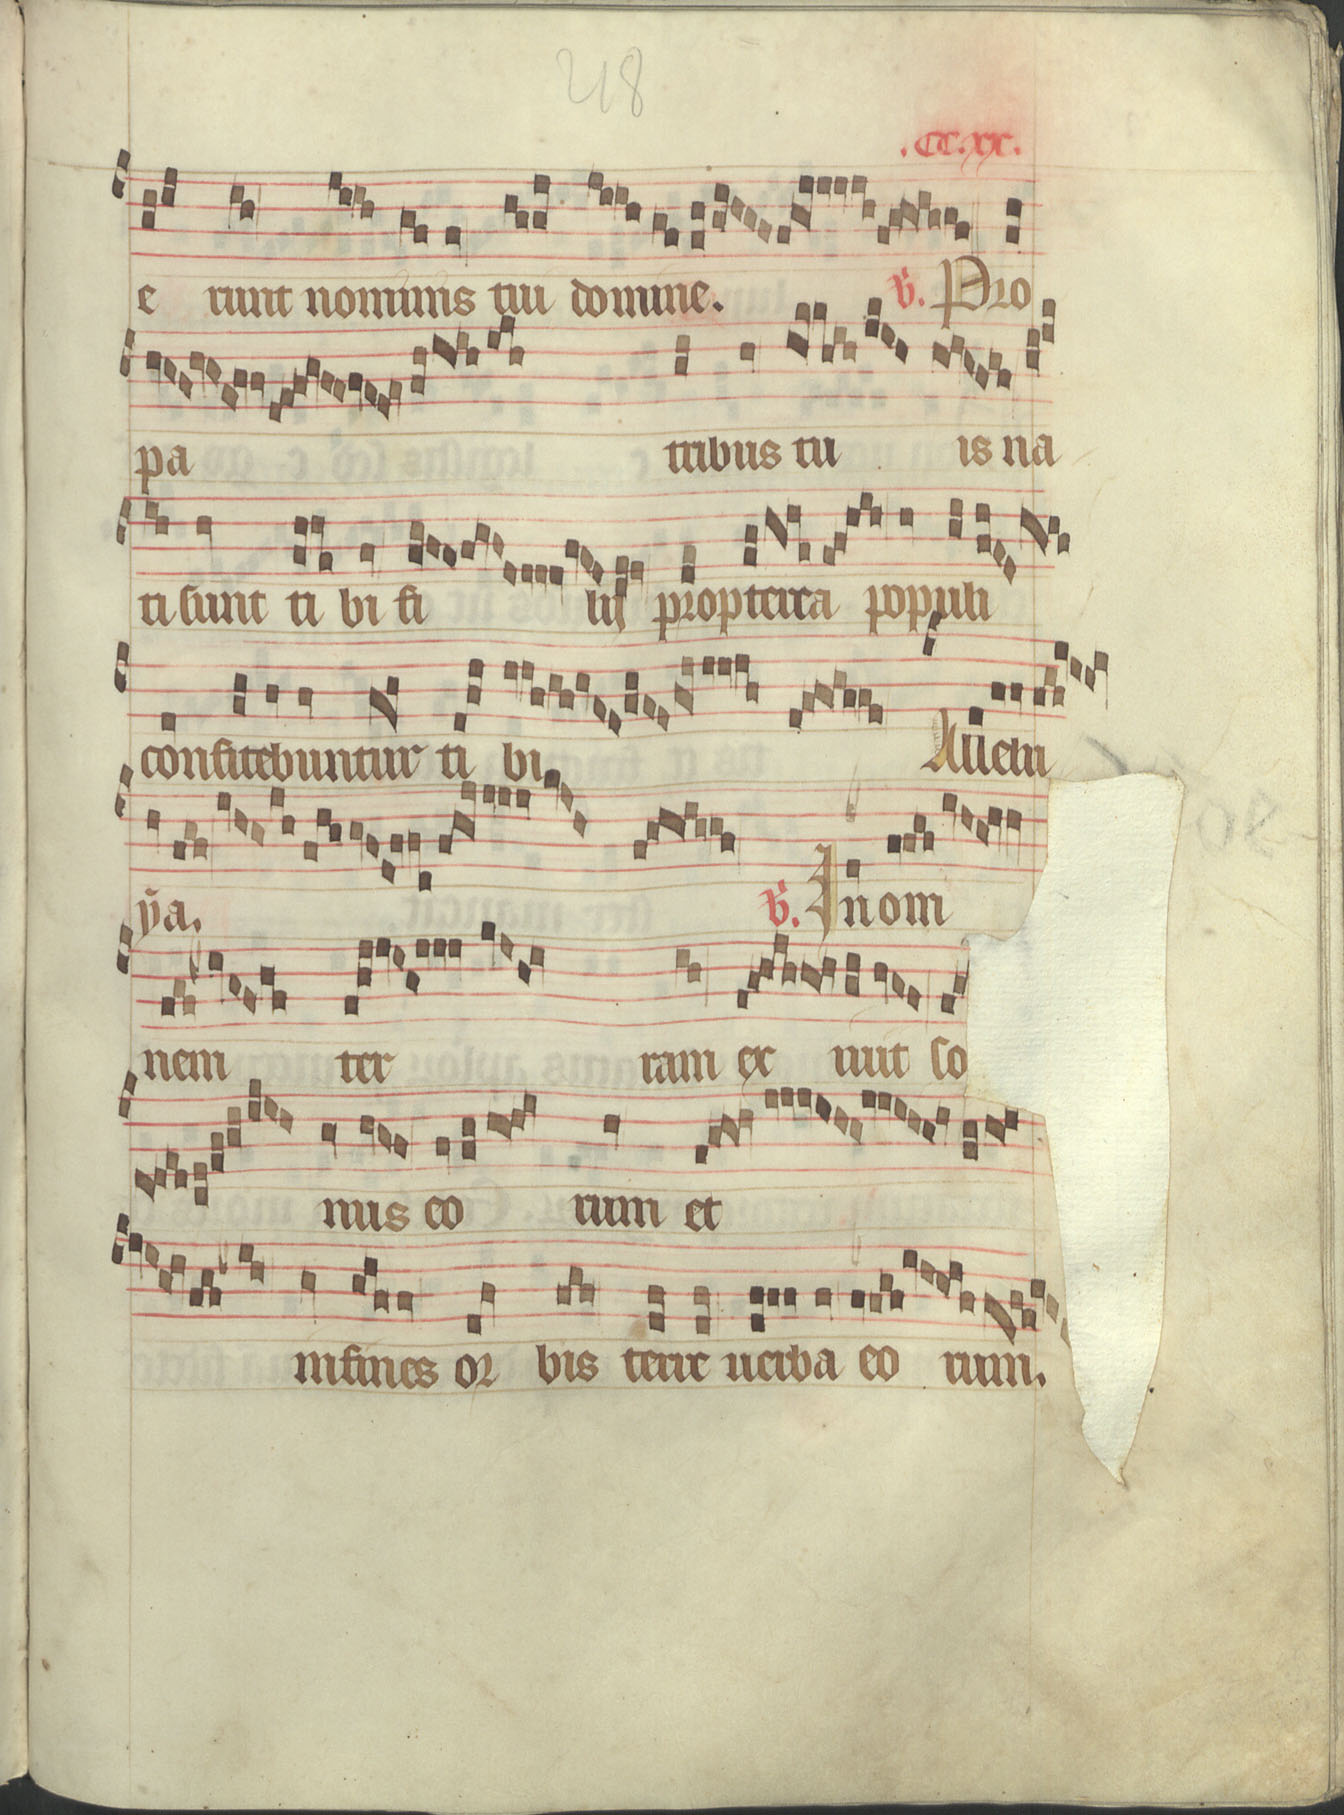 218
.CC.XX.
e runt nominis tui domine. V. Pro
pa tribus tu is na
ti sunt ti bi fi lij propterea populi
confitebuntur ti bi. Allelu
ya. V. In om
nem ter ram ex iuit so
nus eo rum et
in fines or bis terre uerba eo rum.